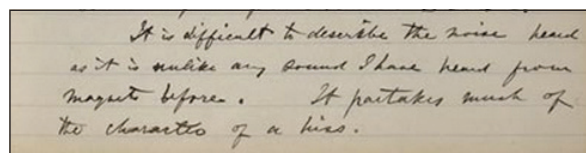 It is difficult to describe the noise heard
as it is unlike any sound I have heard from
magnets before. It partakes much of
the character of a hiss.